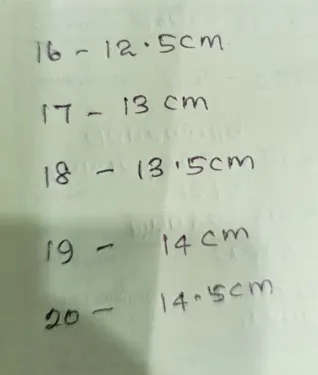 16 - 12.5cm
17 - 13 cm
18 - 13.5cm
19 - 14cm
20 - 14.5cm